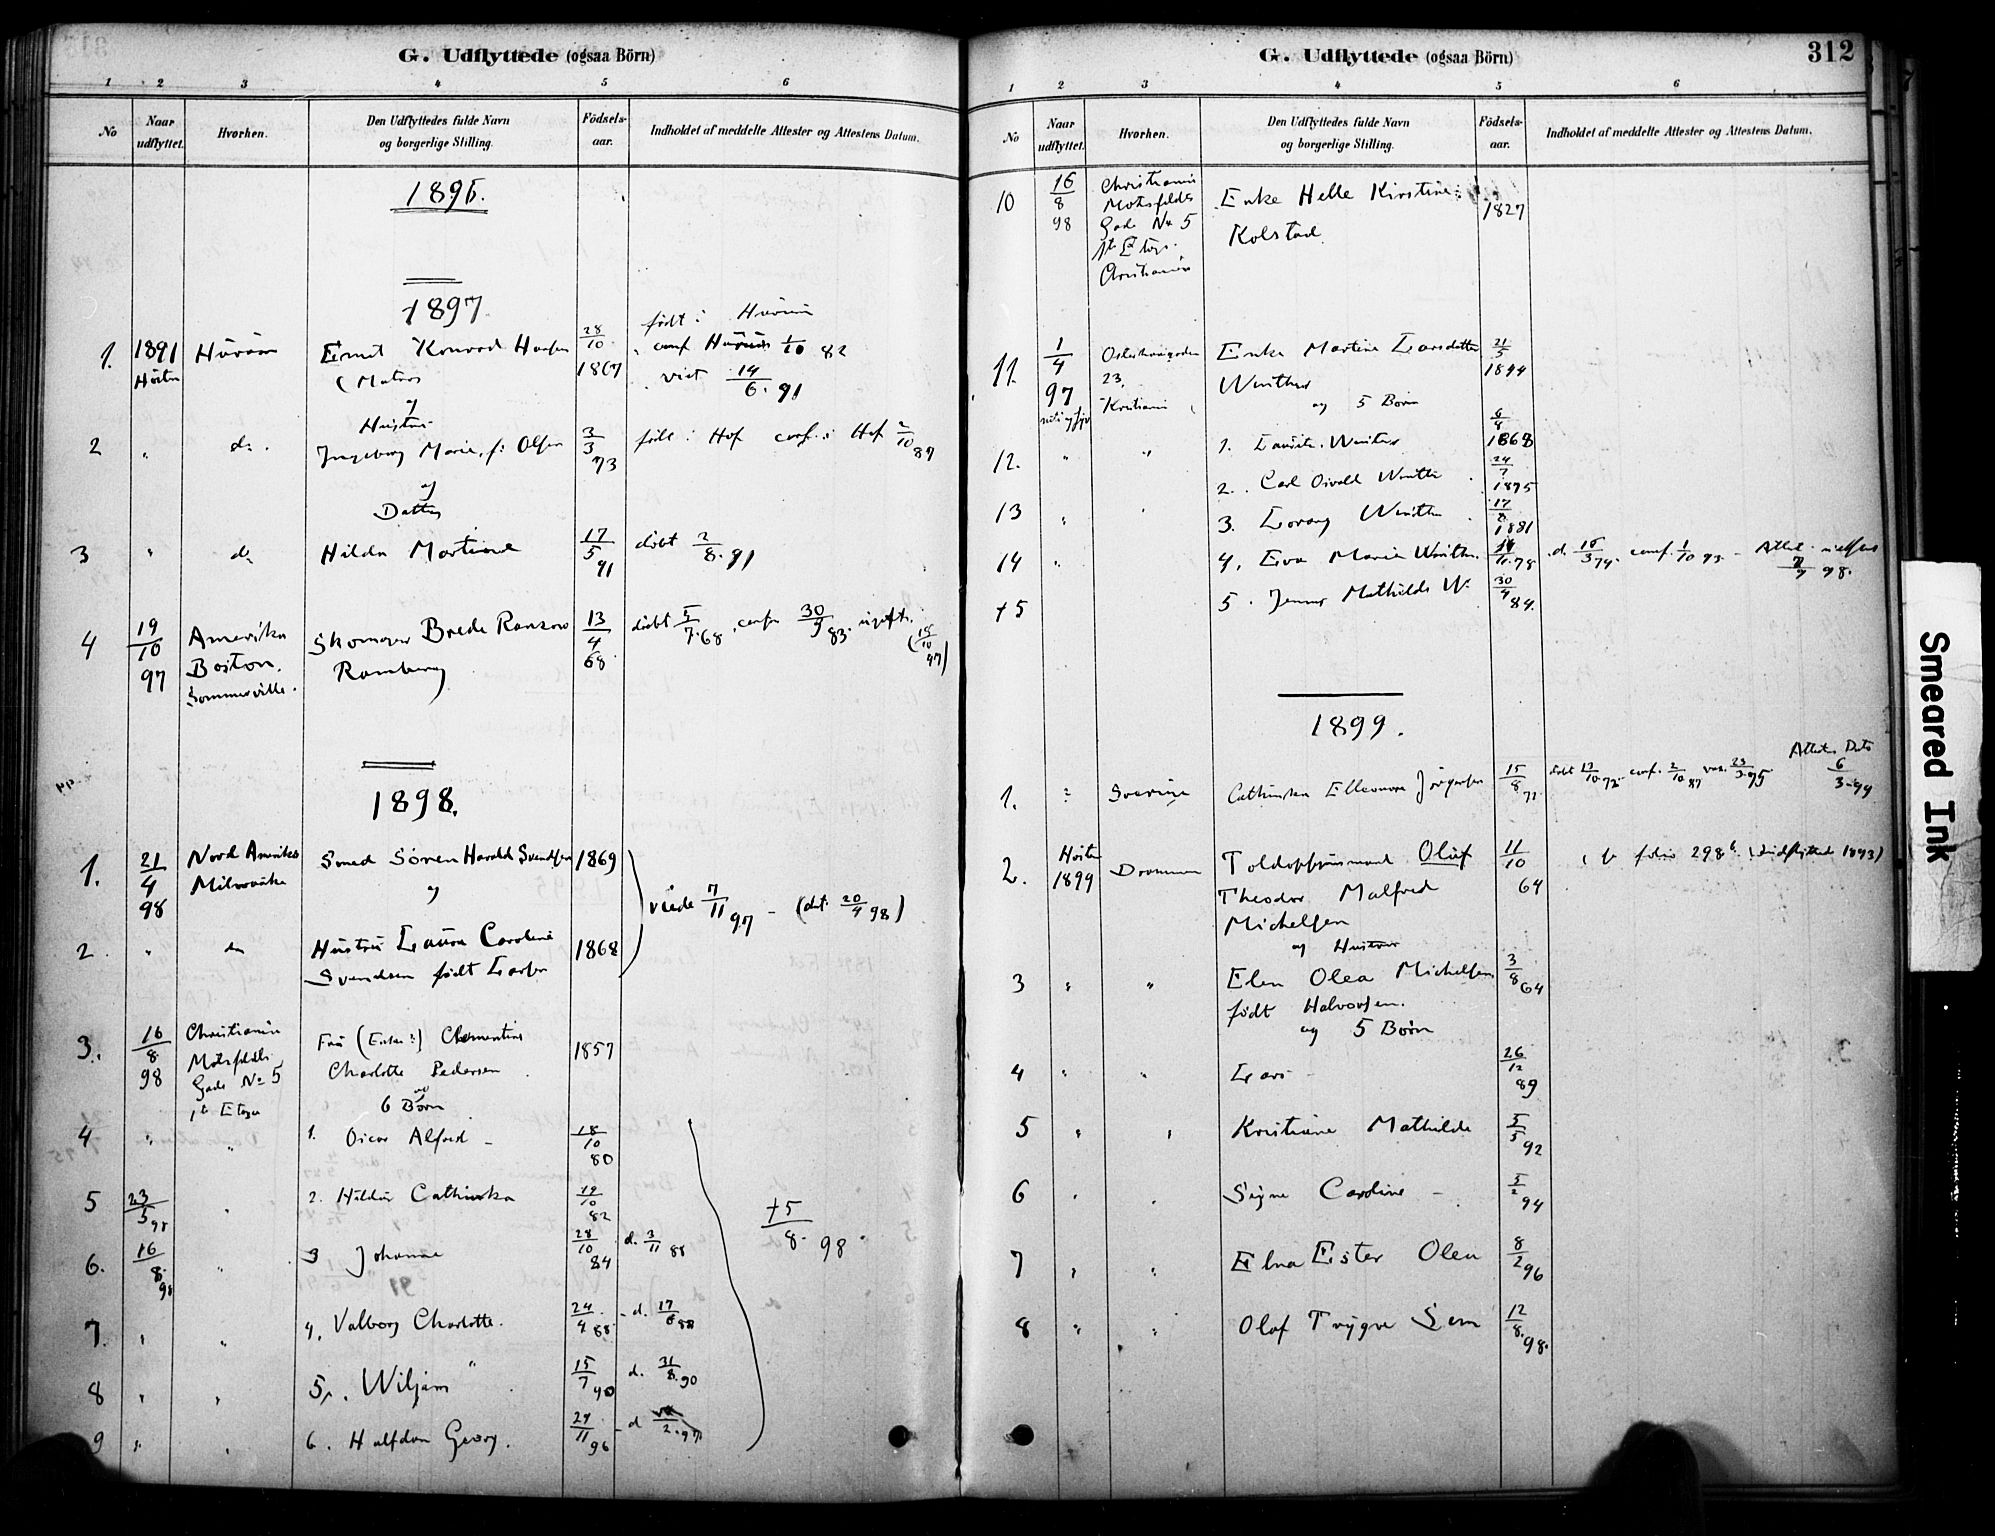 G. Udflyttede (ogsaa Börn)
1 2 3 4 5 6
No
Naar udflyttet.
Hvorhen.
Den Udflyttedes fulde Navn
og borgerlige Stilling.
Födsels-
aar.
Indholdet af meddelte Attester og Attestens Datum.
1897.
1. 1891 Konrad 28/10 1867
(Matros
født i
conf. 1/10 82
viet 14/6. 91
og
Hustru
2 " do. Ingeborg Marie, f. Olsen 3/3 73 født i Hof conf. i Hof 2/10 87
og
Datter
3 " do Hilda Martine 17/5 91 døbt 2/8. 91
4 19/10 97 Amerika Skomager Brede Ranzow 13/4 68 døbt 5/7. 68, conf. 30/9 83. ugift. (18/10 97)
Boston. Ramberg
Sommerville.
1898.
1. 21/4 98 Nord Amerika Smed Sören Harald Svendsen 1869
Milwauke og
viede 7/11 97 - (dat. 20/4 98)
2 " do Hustru Laura Caroline 1868
Svendsen født Larsen
3. 16/8 98 Christiania Fru (Enke?) Clementine 1857
Motzfeldts Charlotte Pedersen
Gade No 5 og
1ste Etage 6 Børn
4 " " 1. Oscar Alfred - 18/10 80
5 23/5 98 " 2. Hildur Cathinka 19/10 82
+5/8. 98.
6. 16/8. 98 " 3 Johanne 28/10 84 d. 3/11 88
7. " " 4. Valborg Charlotte. 24/4 88. - d. 17/6 88
8 " " 5. Wiljam " 15/7 90 d. 31/8. 90
9 " " 6. Halfdan Georg. 29/11 96 - d
G. Udflyttede (ogsaa Börn)
312
1 2 3 4 5 6
No
Naar udflyttet.
Hvorhen.
Den Udflyttedes fulde Navn
og borgerlige Stilling.
Födsels-
aar.
Indholdet af meddelte Attester og Attestens Datum.
10 16/8 98 Christiania Enke Helle Kirstine 1827
Motzfeldts Kolstad.
Gade No 5
1ste Etage.
Christiania
11. 1/4 97 23, Enke Martine Larsdatter 21/5
Kristiania Winther
og 5 Børn
12. " " 1. Winther 6/8 1868
2. Carl Osvald Winther 24/7 1875
13 " " 3. Winther 17/8 1881
14 " 4. Eva Marie Winther. 78 conf. 1/10 93 - Attest
98.
+5 5. Mathilde W. 30/4 84.
1899.
Attestens Dato
1. ? Sverige Cathinka Elleonora Jörgensen 15/8 72 døbt 13/10. 72. conf. 2/10 87 23/3-95 6/3-99
2. Høsten 1899 Drammen Toldopsynsmand Oluf 11/10 64 folio 298 (Indflyttede 1893)
Theodor Malfred
Michelsen
og Hustru
3 " " Elen Olea Michelsen 3/8 64
født Halvorsen.
og 5 Børn
4 " " Lars - 26/12 89
5 " " Kristiane Mathilde 5/5 92
6 " " Signe Caroline - 5/2 94
7 " " Elna Ester Olea 8/2 96
8 " " Olaf Trygve Sem 12/8. 98.
Smeared Ink